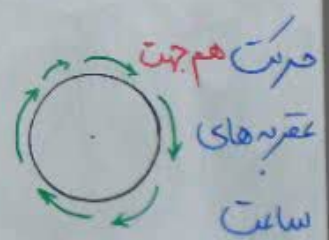 حرکت هم جهت
عقربه های
ساعت